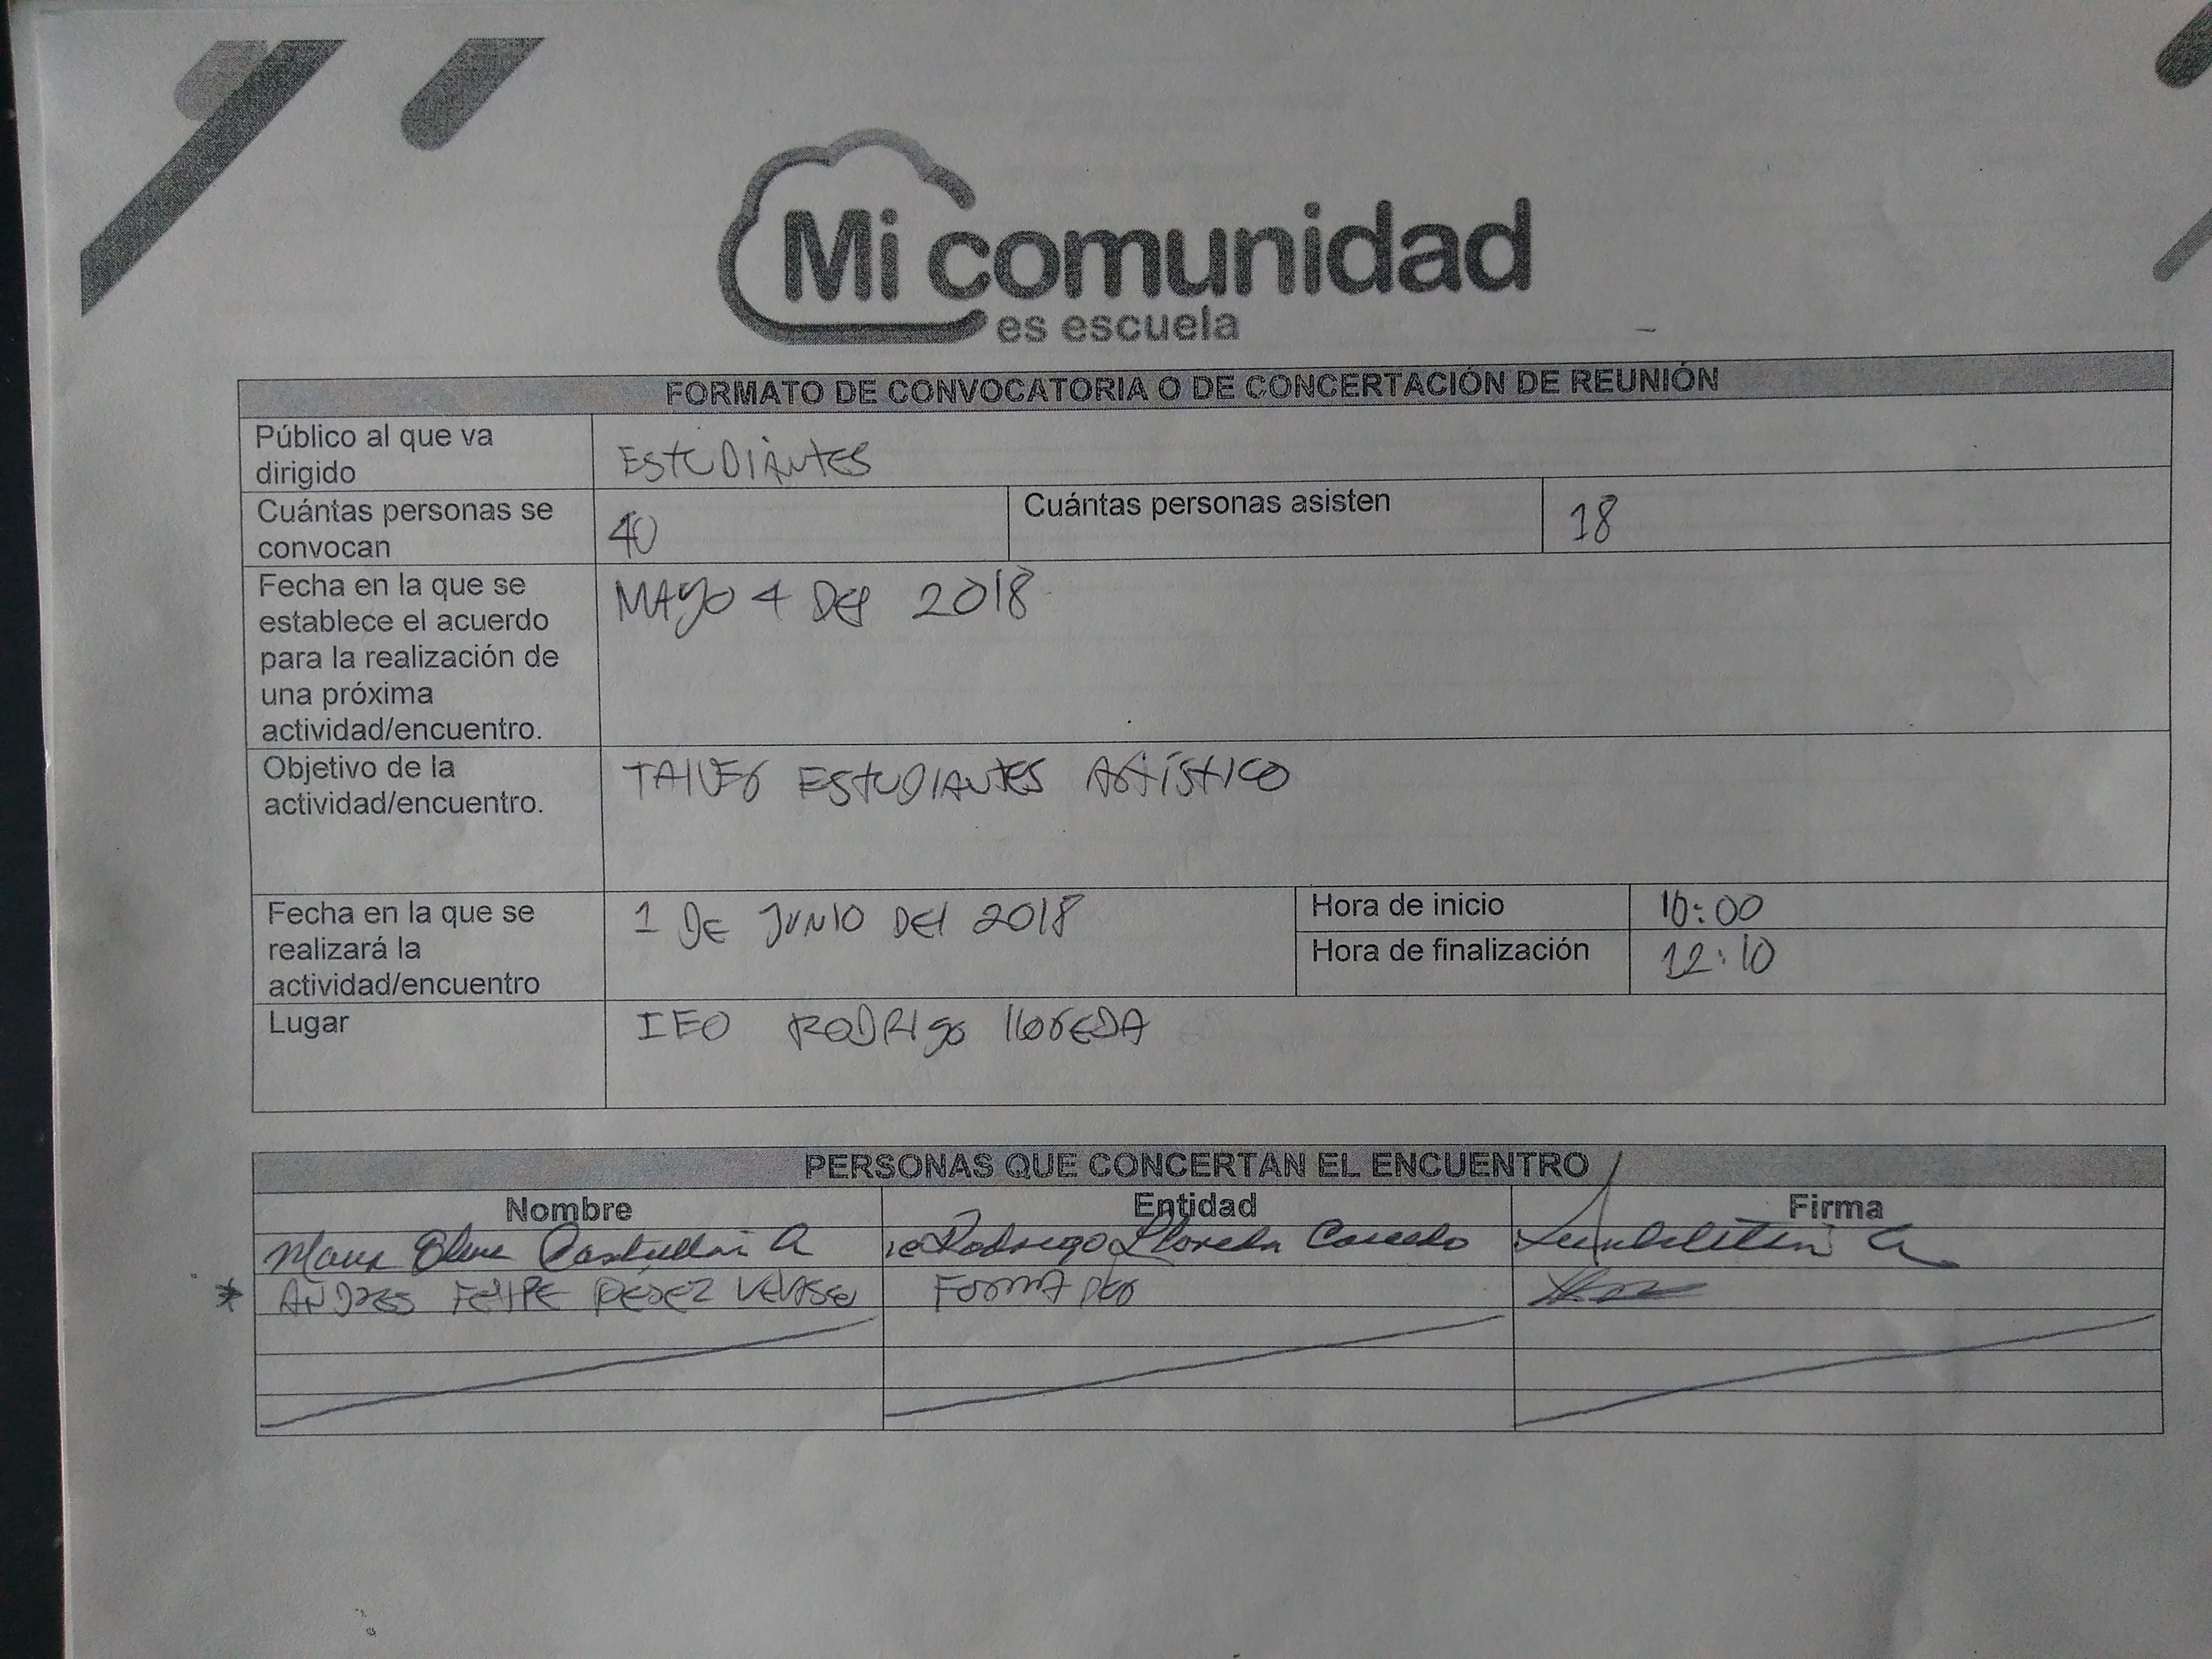 Mi comunidad
es escuela
FORMATO DE CONVOCATORIA O DE CONCERTACIÓN DE REUNIÓN
Público al que va
dirigido
ESTUDIANTES
Cuántas personas se
convocan
40
Cuántas personas asisten
18
Fecha en la que se
establece el acuerdo
para la realización de
una próxima
actividad/encuentro.
MAYO 4 DEL 2018
Objetivo de la
actividad/encuentro.
TALLER ESTUDIANTES ARTÍSTICO
Fecha en la que se
realizará la
actividad/encuentro
1 DE JUNIO DEL 2018
Hora de inicio
10:00
Hora de finalización
12:10
Lugar
IEO RODRIGO LLOREDA
PERSONAS QUE CONCERTAN EL ENCUENTRO
Nombre
Entidad
Firma
A
Rodrigo Lloreda Caicedo
* ANDRES FELIPE PEREZ
FORMADOR